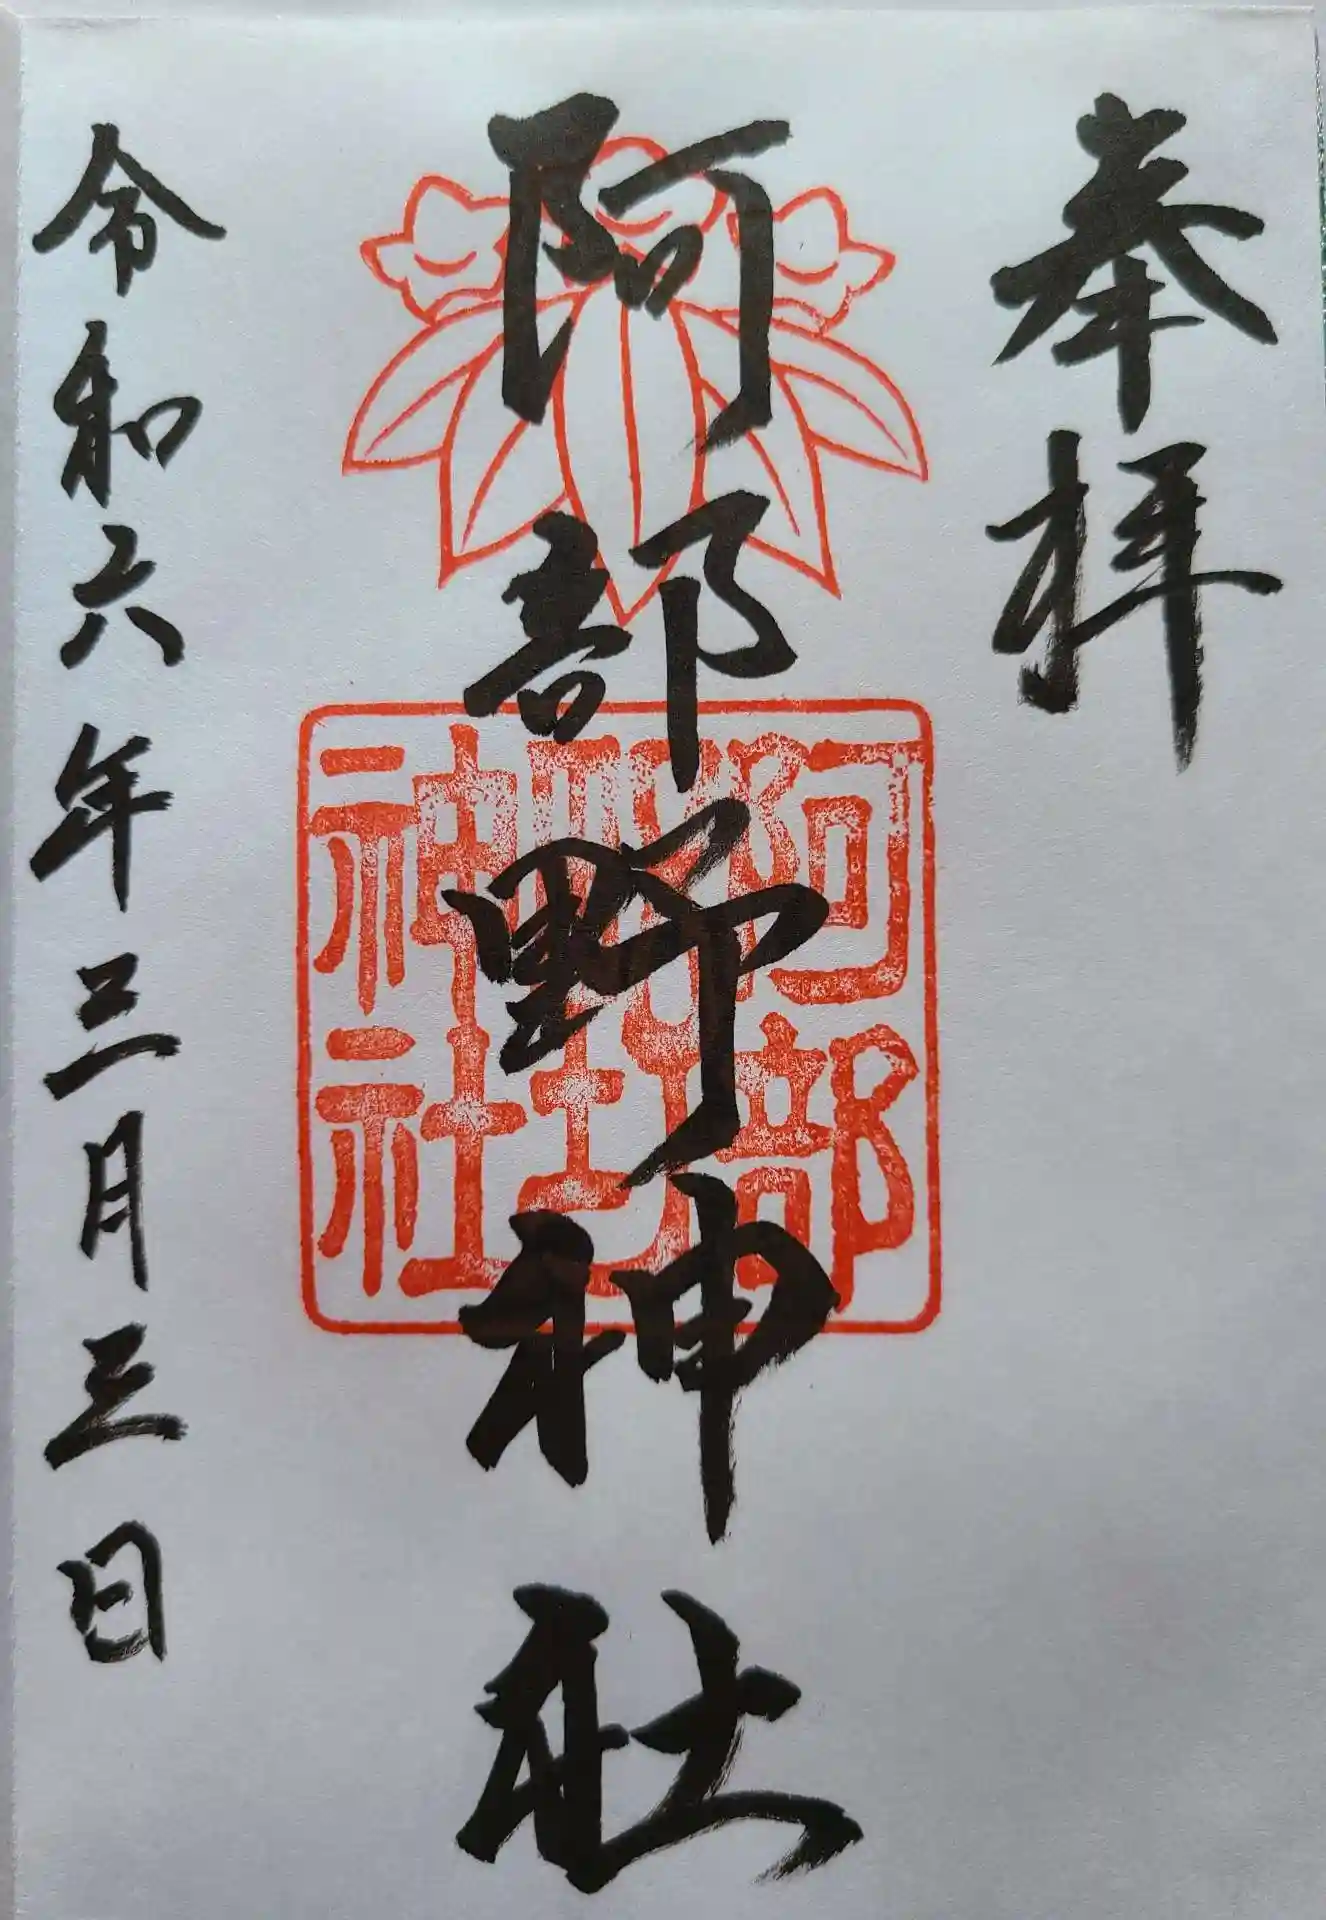 奉拝
阿部野神社
阿部野神社
令和六年三月三日